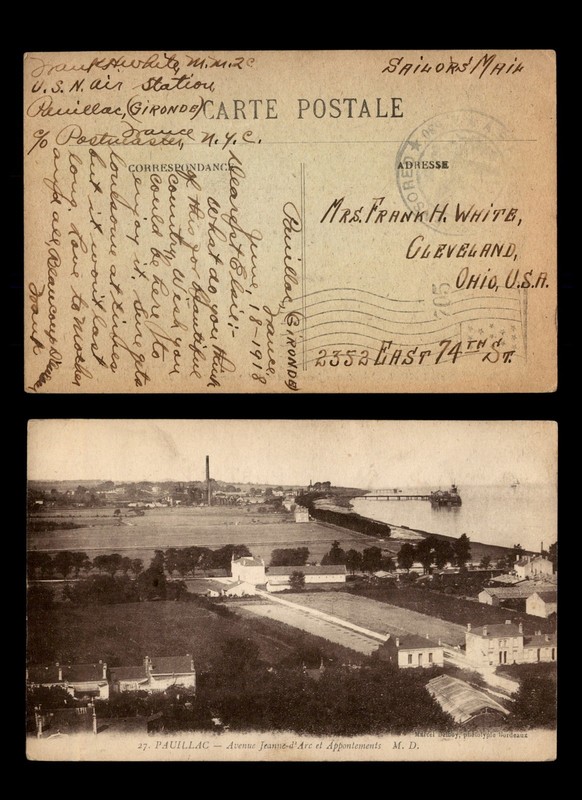 Frank H. White, M.M.2C
U.S.N. Air Station
Pauillac, (GIRONDE)
France
c/o Postmaster, N.Y.C.
SAILORS' MAIL
CARTE POSTALE
CORRESPONDANCE
ADRESSE
Pauillac, (GIRONDE)
France.
June, 18-1918
Dearest Elsie:-
What do you think
of this for beautiful
country. Wish you
could be here to
enjoy it. Love gets
lonesome at times
but it won't last
long. Love to mother
and all, Beaucoup
Frank
MRS. FRANK H. WHITE,
CLEVELAND,
OHIO, U.S.A.
2352 EAST 74TH ST.
705
27. PAUILLAC — Avenue Jeanne-d'Arc et Appontements M. D.
Marcel Delboy, phototypie Bordeaux